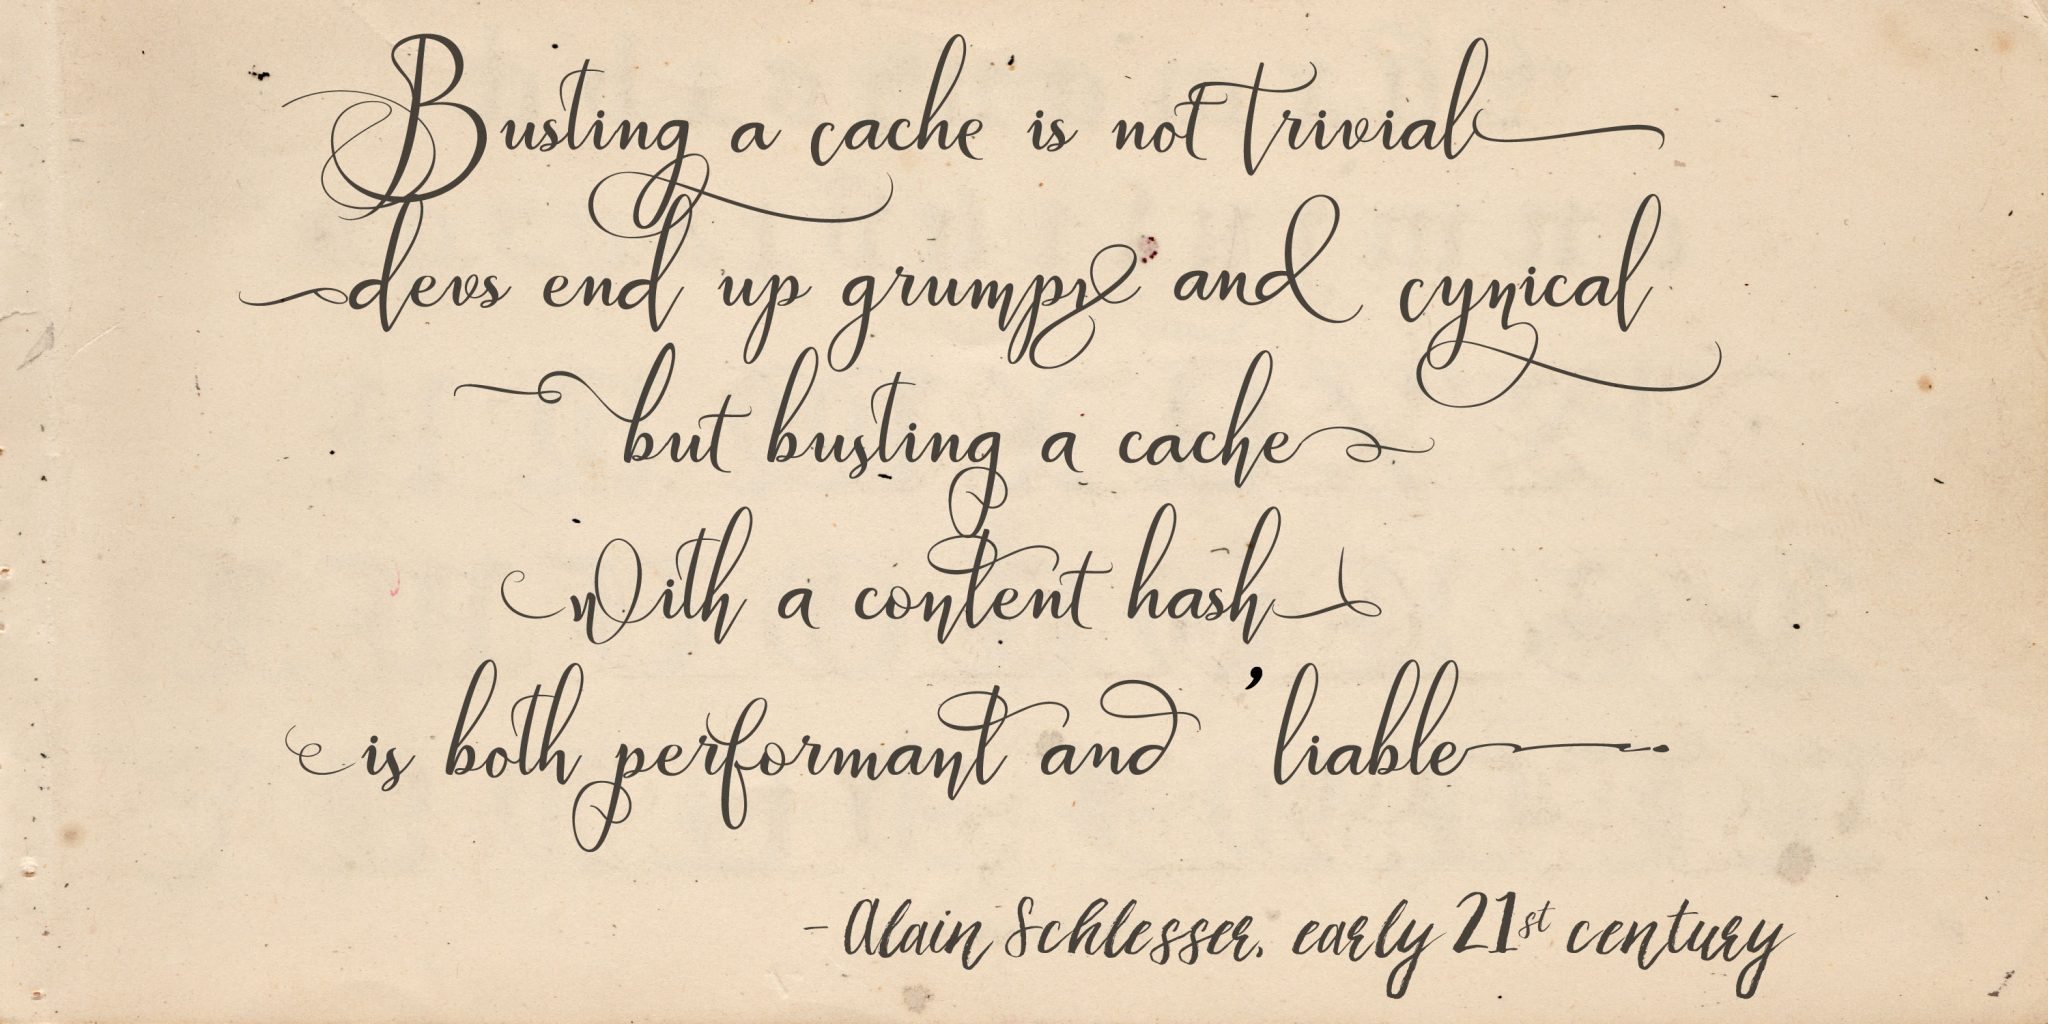 Busting a cache is not trivial
devs end up grumpy and cynical
but busting a cache
with a content hash
is both performant and 'liable
- Alain Schlesser, early 21st century